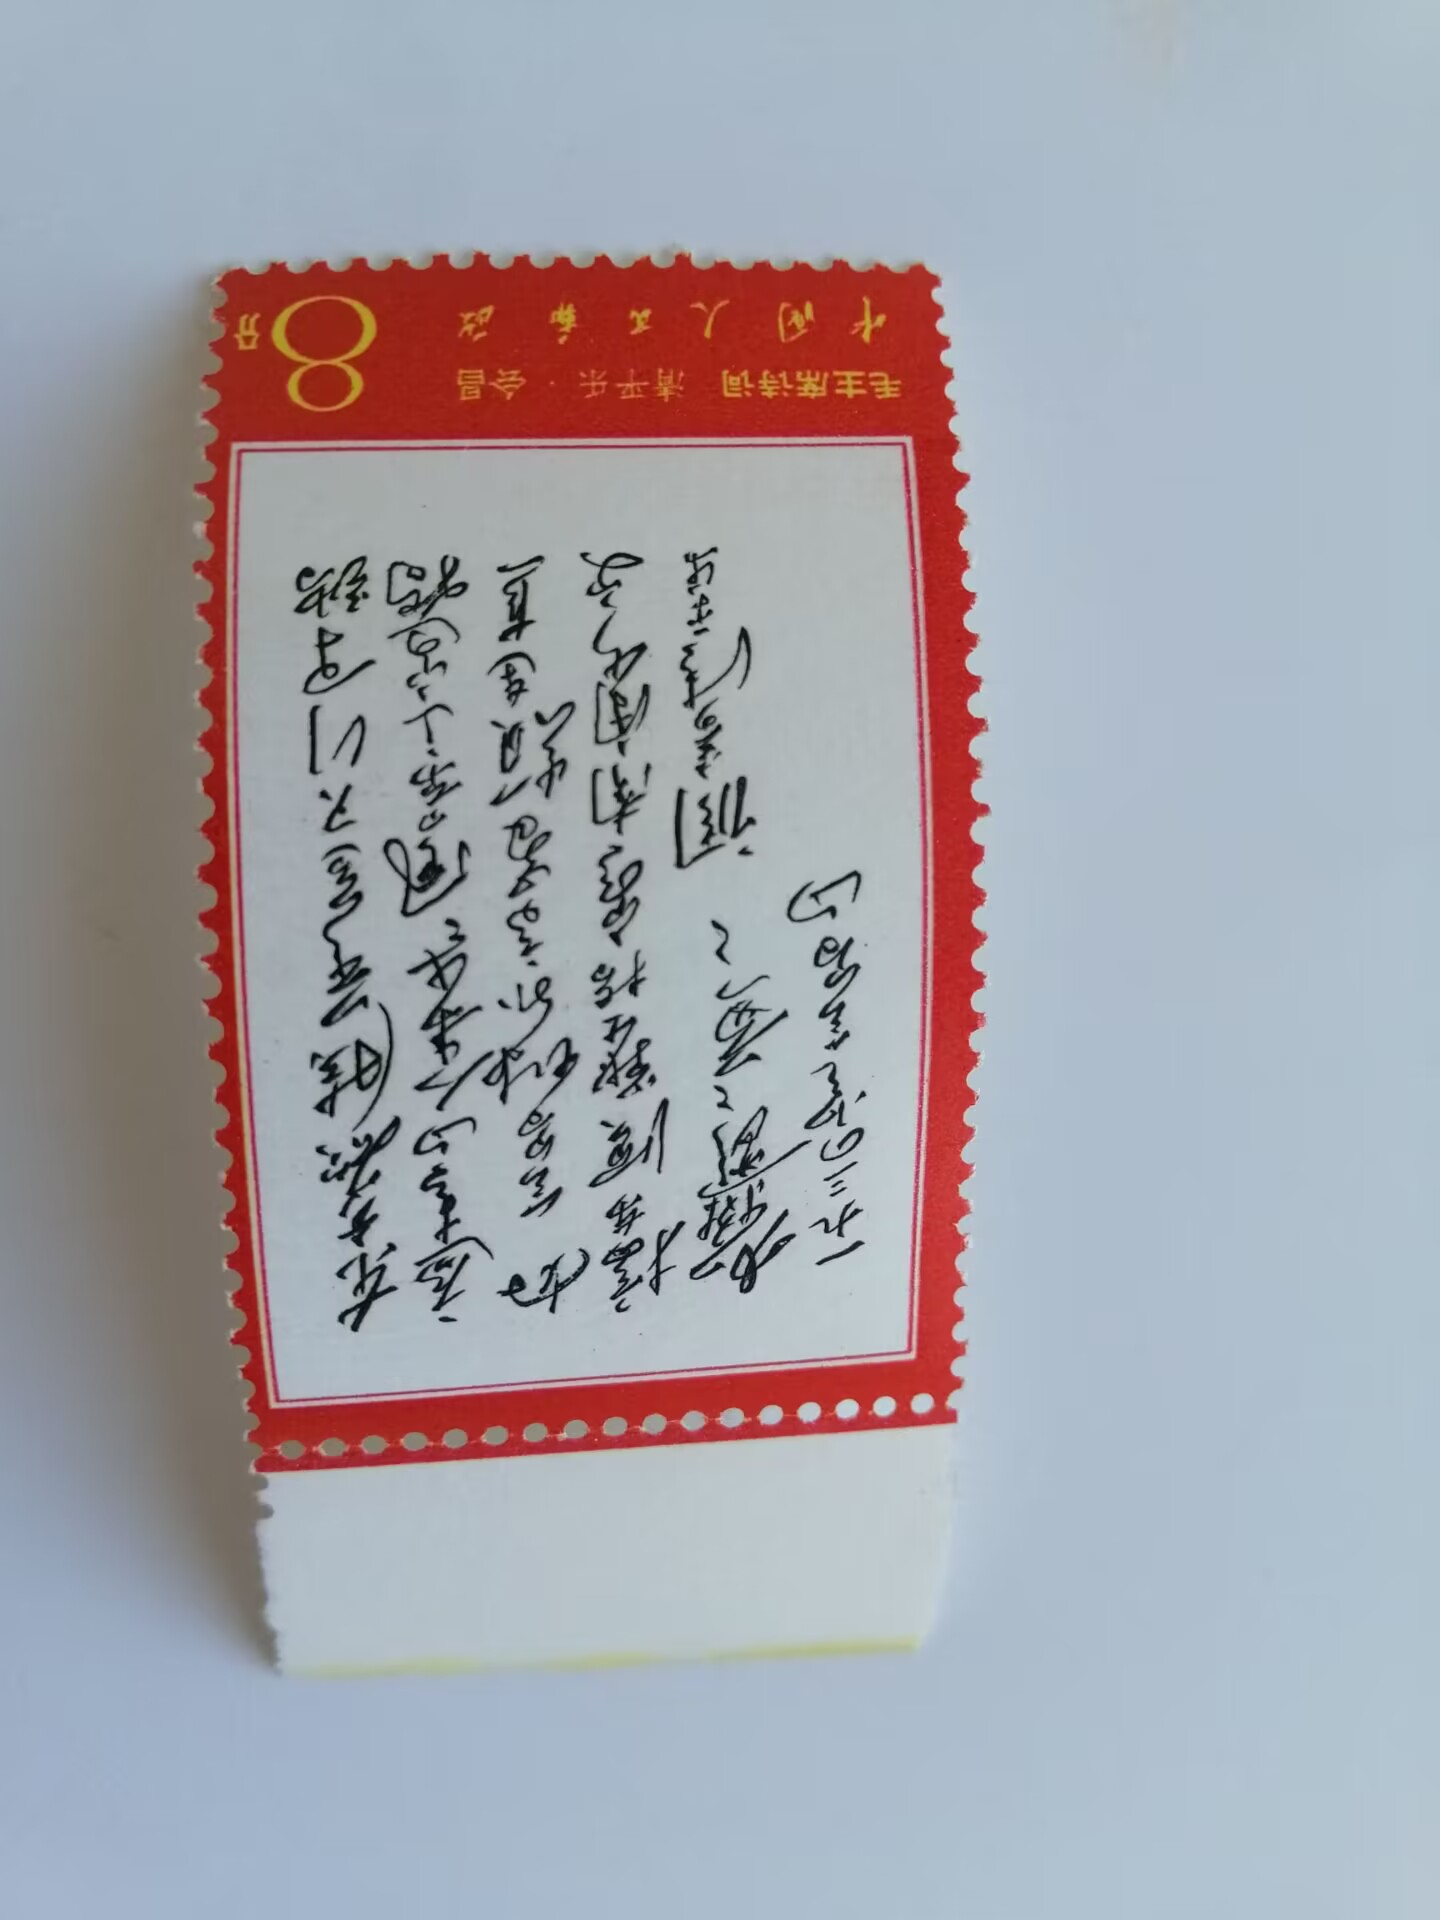 中国人民邮政
8分
毛主席诗词 清平乐·会昌
东方欲晓莫道君行早踏
遍青山人未老风景这边独
好会昌城外高峰颠连直
接东溟战士指看南粤更
加郁郁葱葱
调寄清平乐
一九三四
会昌山